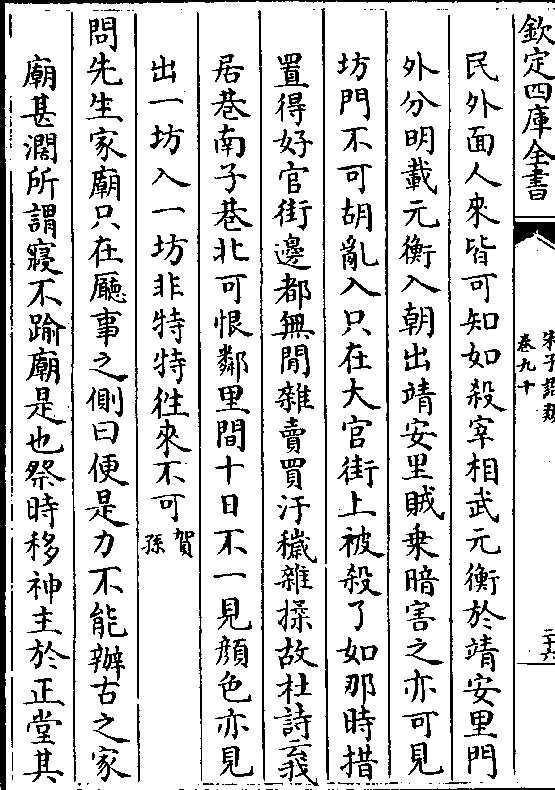 欽定四庫全書
朱子語類
卷九十
二十六
民外面人來皆可知如殺宰相武元衡於靖安里門
外分明載元衡入朝出靖安里賊乗暗害之亦可見
坊門不可胡亂入只在大官街上被殺了如那時措
置得好官街邊都無閒雜賣買汙穢雜揉故杜詩云我
居巷南子巷北可恨鄰里間十日不一見顔色亦見
出一坊入一坊非特特徃來不可賀孫
問先生家廟只在廳事之側曰便是力不能辦古之家
廟甚濶所謂寢不踰廟是也祭時移神主於正堂其